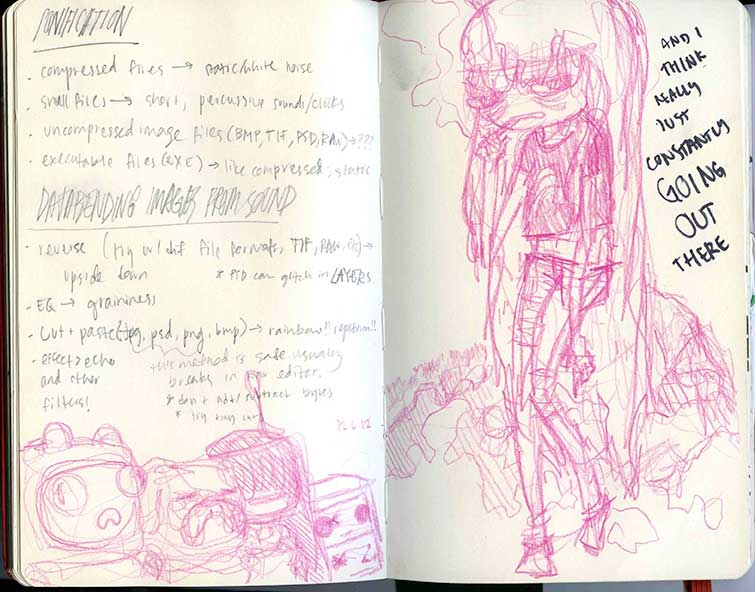 SONIFICATION
· compressed files → static/white noise
· small files → short, percussive sounds/clicks
· uncompressed image files (BMP, TIF, PSD, RAW) → ???
· executable files (EXE) → like compressed, static
DATABENDING IMAGES FROM SOUND
· reverse (try w/ dif file formats, TIF, RAW, etc) →
upside down * PSD can glitch in LAYERS
· EQ → graininess
· Cut + paste (jpg, psd, png, bmp) → rainbow!! repetition!!
· effect > echo
and other
filters!
this method is safe, usually
breaks in editor.
* don't add/subtract bytes
* try tiny
12.6.12
AND I
THINK
REALLY
JUST
CONSTANTLY
GOING
OUT
THERE